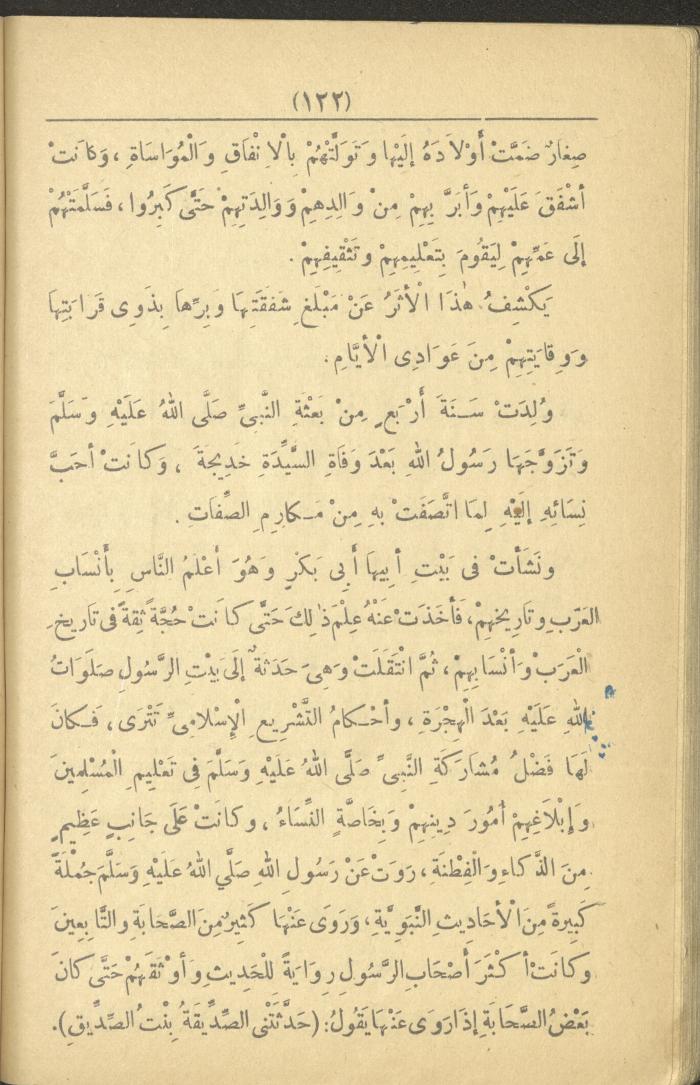 (١٢٢)
صِغَارٌ ضَمَّتْ أَوْلَادَهُ إِلَيْهَا وَتَوَلَّتْهُمْ بِالْإِنْفَاقِ وَالْمُوَاسَاةِ ، وَكَانَتْ
أَشْفَقَ عَلَيْهِمْ وَأَبَرَّ بِهِمْ مِنْ وَالِدِهِمْ وَوَالِدَتِهِمْ حَتَّى كَبِرُوا ، فَسَلَّمَتْهُمْ
إِلَى عَمِّهِمْ لِيَقُومَ بِتَعْلِيمِهِمْ وَتَثْقِيفِهِمْ .
يَكْشِفُ هٰذَا الْأَثَرُ عَنْ مَبْلَغِ شَفَقَتِهَا وَبِرِّهَا بِذَوِى قَرَابَتِهَا
وَوِقَايَتِهِمْ مِنَ عَوَادِى الْأَيَّامِ .
وُلِدَتْ سَنَةَ أَرْبَعٍ مِنْ بَعْثَةِ النَّبِىِّ صَلَّى اللهُ عَلَيْهِ وَسَلَّمَ
وَتَزَوَّجَهَا رَسُولُ اللهِ بَعْدَ وَفَاةِ السَّيِّدَةِ خَدِيجَةَ ، وَكَانَتْ أَحَبَّ
نِسَائِهِ إِلَيْهِ لِمَا اتَّصَفَتْ بِهِ مِنْ مَكَارِمِ الصِّفَاتِ .
وَنَشَأَتْ فِى بَيْتِ أَبِيهَا أَبِى بَكْرٍ وَهُوَ أَعْلَمُ النَّاسِ بِأَنْسَابِ
الْعَرَبِ وَتَارِيخِهِمْ ، فَأَخَذَتْ عَنْهُ عِلْمَ ذٰلِكَ حَتَّى كَانَتْ حُجَّةً ثِقَةً فِى تَارِيخِ
الْعَرَبِ وَأَنْسَابِهِمْ ، ثُمَّ انْتَقَلَتْ وَهِىَ حَدَثَةٌ إِلَى بَيْتِ الرَّسُولِ صَلَوَاتُ
اللهِ عَلَيْهِ بَعْدَ الْهِجْرَةِ ، وَأَحْكَامُ التَّشْرِيعِ الْإِسْلَامِىِّ تَتْرَى ، فَكَانَ
لَهَا فَضْلُ مُشَارَكَةِ النَّبِىِّ صَلَّى اللهُ عَلَيْهِ وَسَلَّمَ فِى تَعْلِيمِ الْمُسْلِمِينَ
وَإِبْلَاغِهِمْ أُمُورَ دِينِهِمْ وَبِخَاصَّةٍ النِّسَاءُ ، وَكَانَتْ عَلَى جَانِبٍ عَظِيمٍ
مِنَ الذَّكَاءِ وَالْفِطْنَةِ ، رَوَتْ عَنْ رَسُولِ اللهِ صَلَّي اللهُ عَلَيْهِ وَسَلَّمَ جُمْلَةً
كَبِيرَةً مِنَ الْأَحَادِيثِ النَّبَوِيَّةِ ، وَرَوَى عَنْهَا كَثِيرٌ مِنَ الصَّحَابَةِ وَالتَّابِعِينَ
وَكَانَتْ أَكْثَرَ أَصْحَابِ الرَّسُولِ رِوَايَةً لِلْحَدِيثِ وَأَوْثَقَهُمْ حَتَّى كَانَ
بَعْضُ الصَّحَابَةِ إِذَا رَوَى عَنْهَا يَقُولُ : (حَدَّثَتْنِى الصِّدِّيقَةُ بِنْتُ الصِّدِّيقِ) .